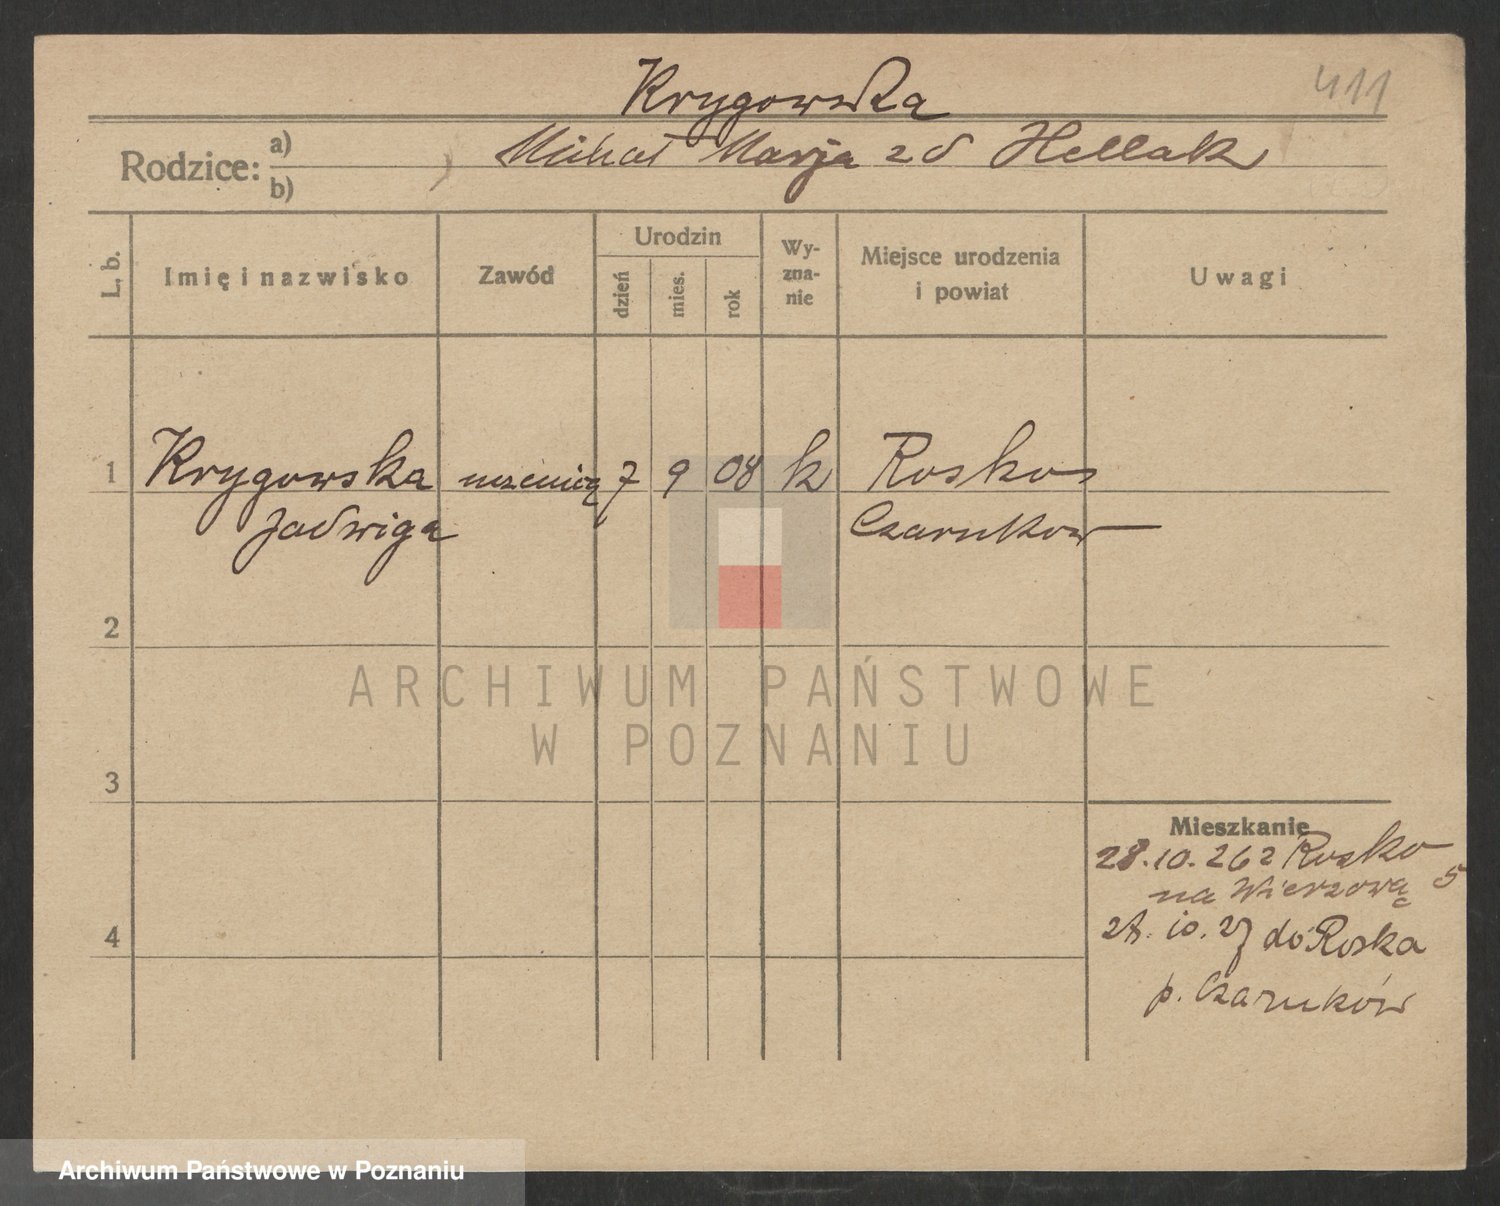 411
Krygowska
Rodzice: a) Michał Marja z d Hellak
b)
L. b.
Imię i nazwisko
Zawód
Urodzin
dzień
mies.
rok
Wy-
zna-
nie
Miejsce urodzenia
i powiat
Uwagi
1 Krygowska uczenica 7 9 08 k Roskos
Jadwiga Czarnkow
2
3
4
Mieszkanie
28.10.26 z Rosko
na Wierzową 5
28.10.27 do Roska
p. Czarnków
ARCHIWUM PAŃSTWOWE
W POZNANIU
Archiwum Państwowe w Poznaniu